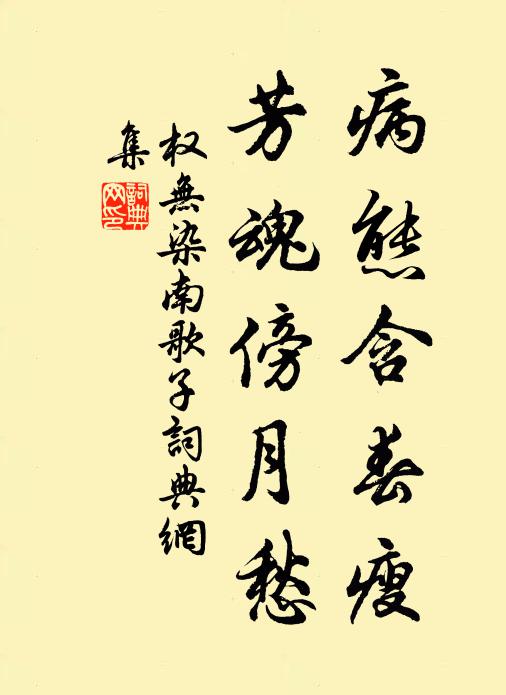 病態含春瘦
芳魂傍月愁
权無染南歌子詞典網
集
詞典網印